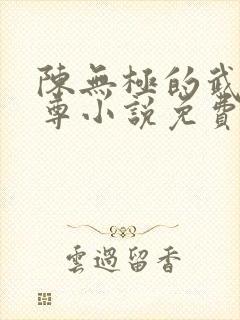 陳無極的武
尊小說免費
雲過留香